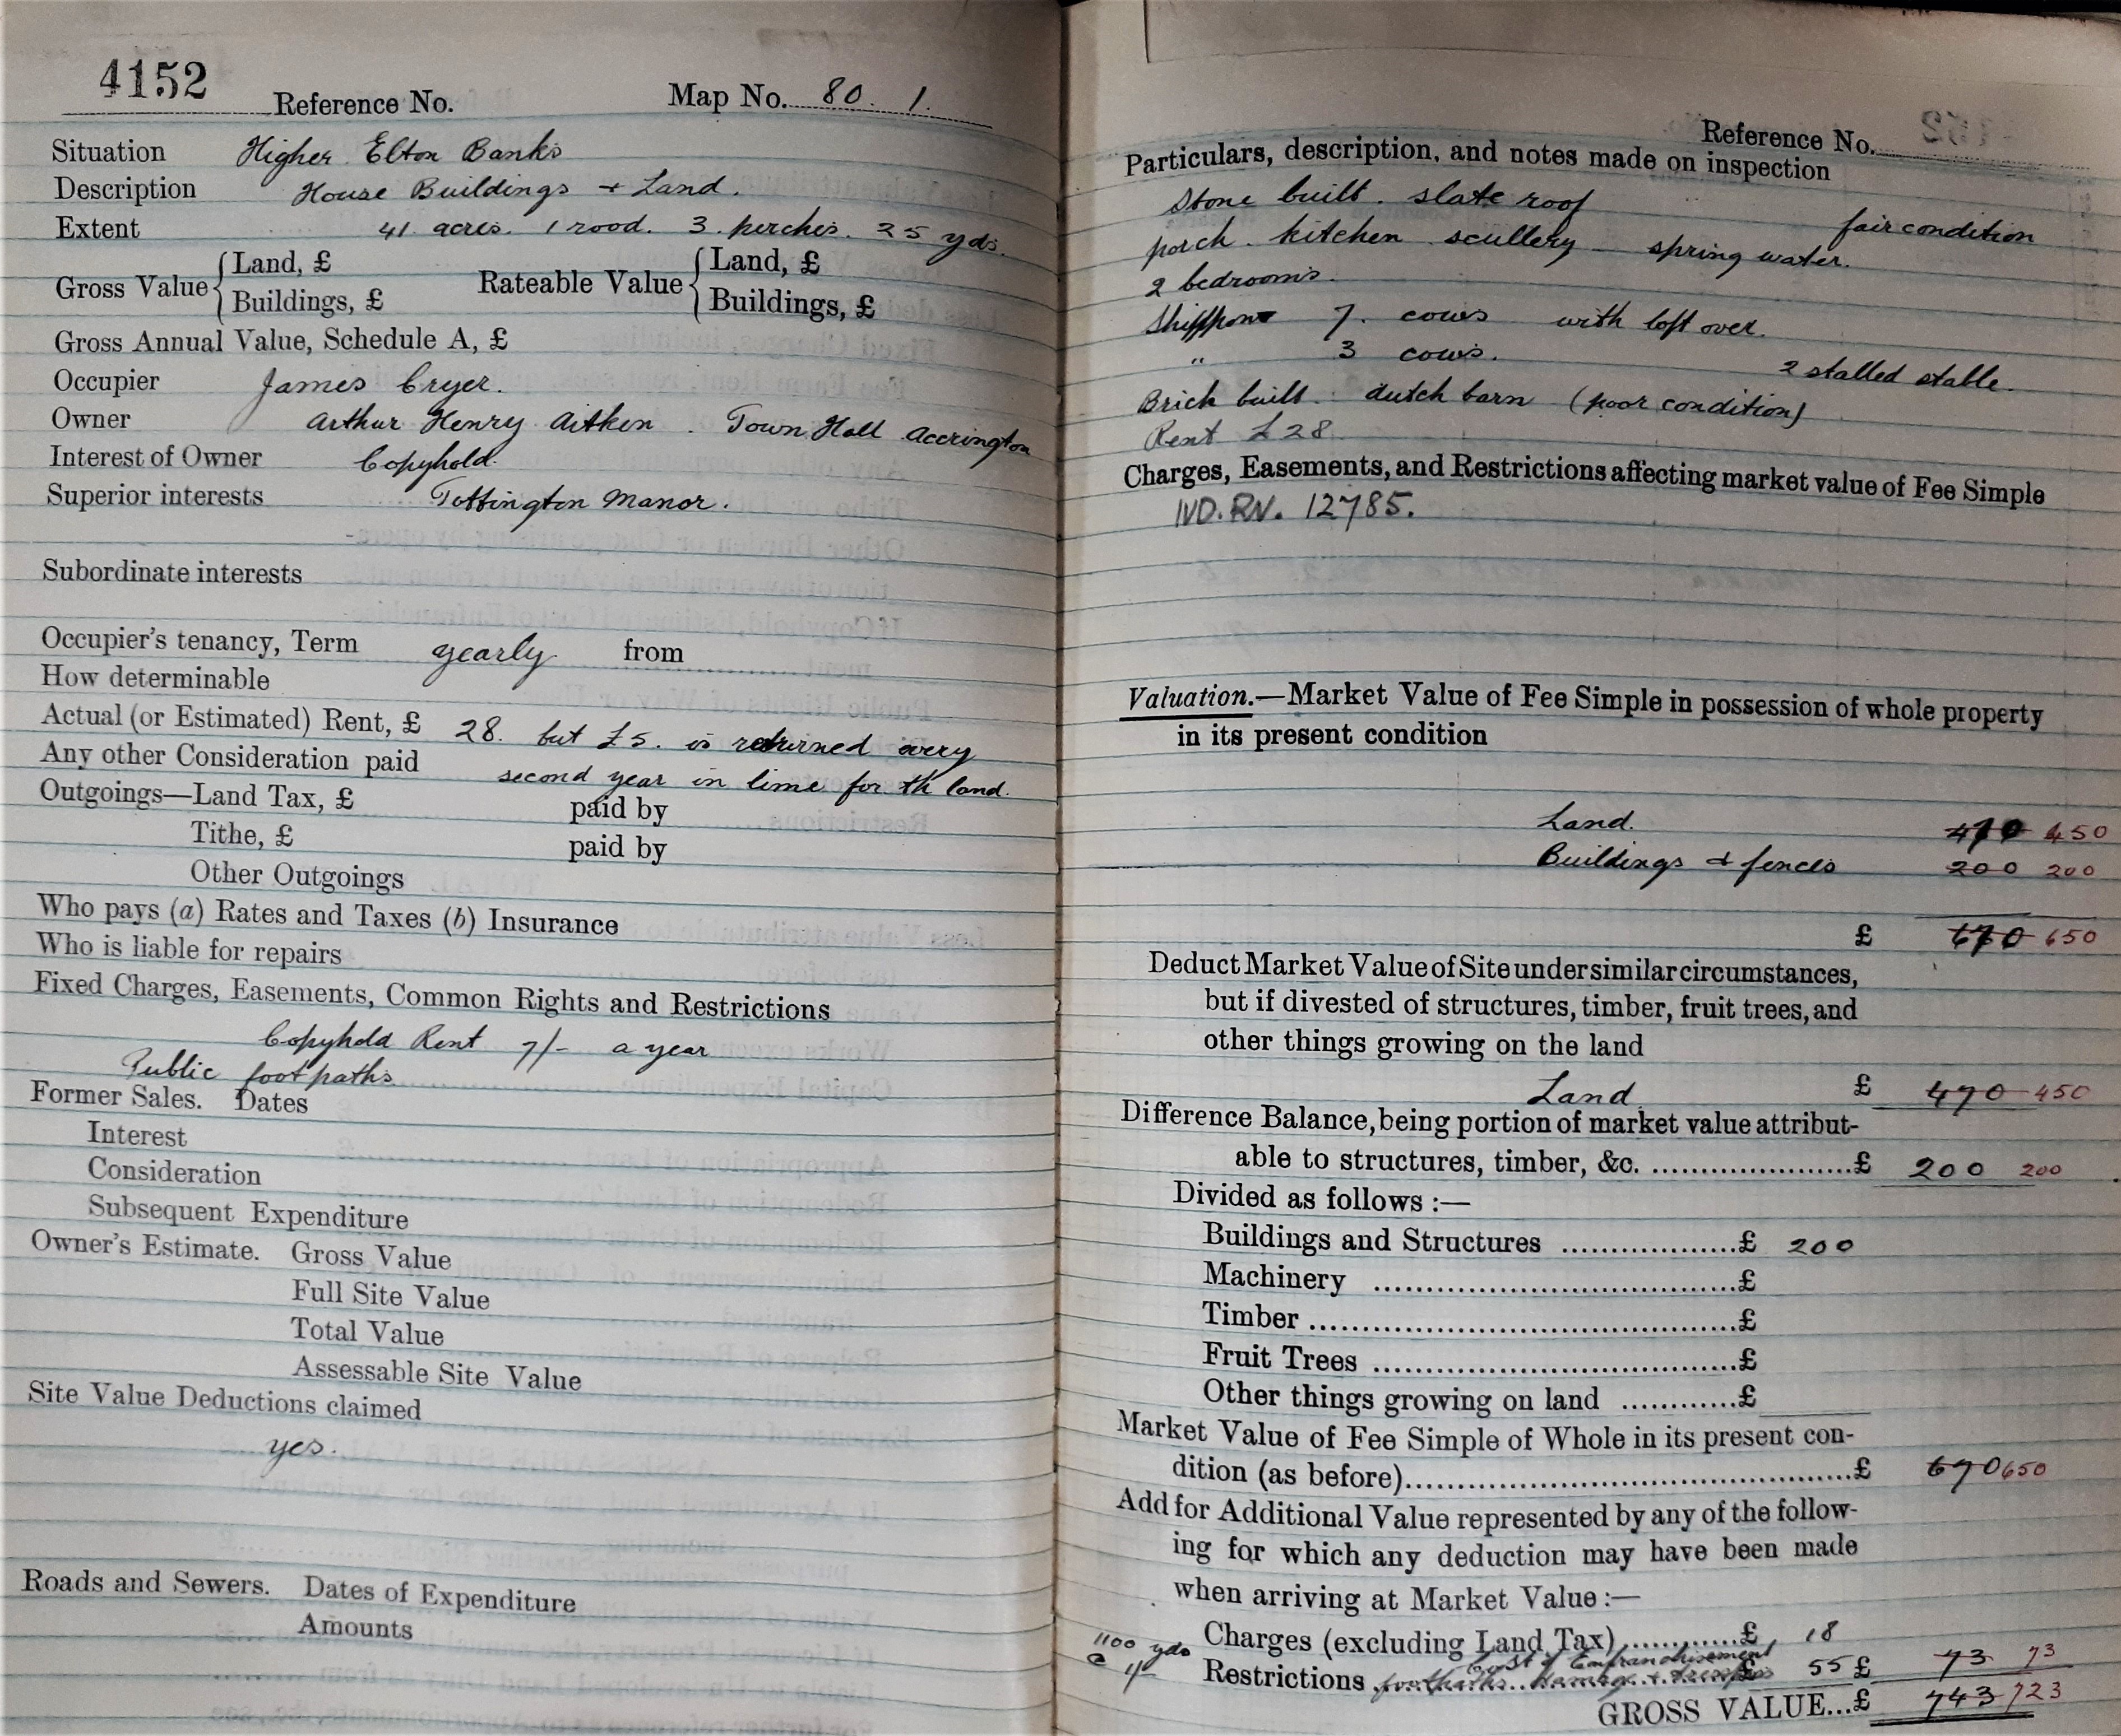 4152
Reference No. Map No. 80. 1.
Situation Higher Elton Banks
Description House Buildings + Land.
Extent 41. acres. 1 rood. 3. perches. 25 yds.
Gross Value { Land, £ Rateable Value { Land, £
Buildings, £ Buildings, £
Gross Annual Value, Schedule A, £
Occupier James Cryer.
Owner Arthur Henry Aitken. Town Hall Accrington
Interest of Owner Copyhold.
Superior interests Tottington Manor.
Subordinate interests
Occupier's tenancy, Term yearly from
How determinable
Actual (or Estimated) Rent, £ 28. but £5. is returned every
Any other Consideration paid second year in lime for th land.
Outgoings—Land Tax, £ paid by
Tithe, £ paid by
Other Outgoings
Who pays (a) Rates and Taxes (b) Insurance
Who is liable for repairs
Fixed Charges, Easements, Common Rights and Restrictions
Copyhold Rent 7/- a year
Public footpaths
Former Sales. Dates
Interest
Consideration
Subsequent Expenditure
Owner's Estimate. Gross Value
Full Site Value
Total Value
Assessable Site Value
Site Value Deductions claimed
yes.
Roads and Sewers. Dates of Expenditure
Amounts
Reference No.
Particulars, description, and notes made on inspection
Stone built. slate roof fair condition
porch. kitchen scullery spring water.
2 bedrooms.
Shippon 7. cows with loft over.
" 3 cows. 2 stalled stable.
Brick built dutch barn (poor condition)
Rent £28
Charges, Easements, and Restrictions affecting market value of Fee Simple
IVD. RV. 12785.
Valuation.—Market Value of Fee Simple in possession of whole property
in its present condition
Land. 470 450
Buildings & fences 200 200
£ 670 650
Deduct Market Value of Site under similar circumstances,
but if divested of structures, timber, fruit trees, and
other things growing on the land
Land £ 470 450
Difference Balance, being portion of market value attribut-
able to structures, timber, &c. ....................£ 200 200
Divided as follows :—
Buildings and Structures ..................£ 200
Machinery ....................................£
Timber ...........................................£
Fruit Trees .....................................£
Other things growing on land ............£
Market Value of Fee Simple of Whole in its present con-
dition (as before)..............................................£ 670 650
Add for Additional Value represented by any of the follow-
ing for which any deduction may have been made
when arriving at Market Value :—
1100 yds Charges (excluding Land Tax)............£ 18
Cost of Enfranchisement
Restrictions footpaths £ 55 £ 73 73
GROSS VALUE...£ 743 723